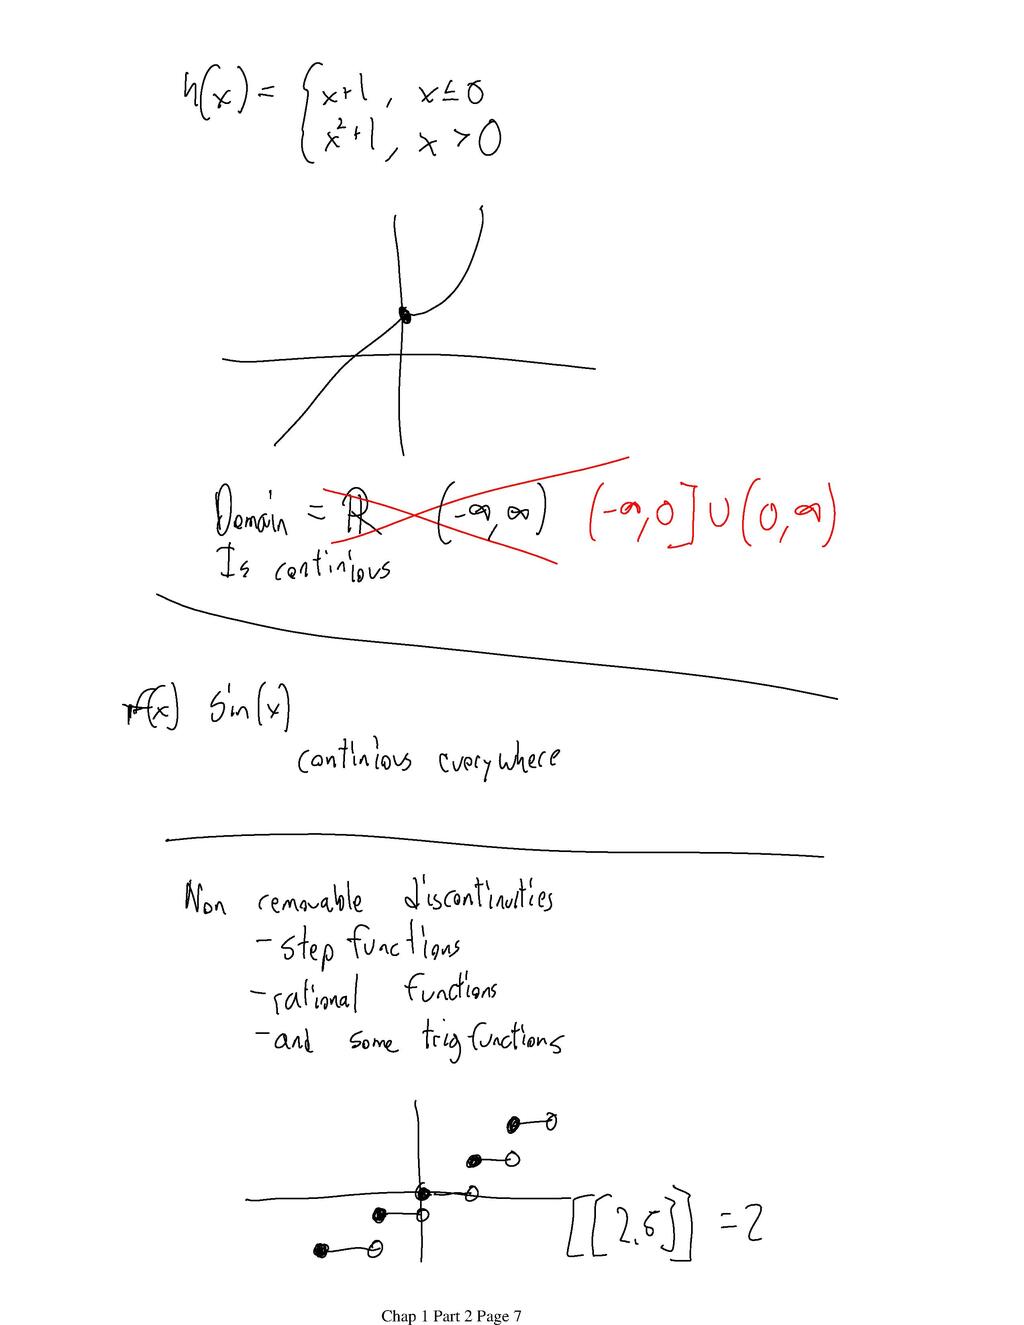 h(x) = { x+1, x ≤ 0
x²+1, x > 0
Domain = ℝ (-∞, ∞) (-∞, 0] ∪ (0, ∞)
Is continious
f(x) Sin(x)
continious everywhere
Non removable discontinuities
- step functions
- rational functions
- and some trig functions
[[2.5]] = 2
Chap 1 Part 2 Page 7